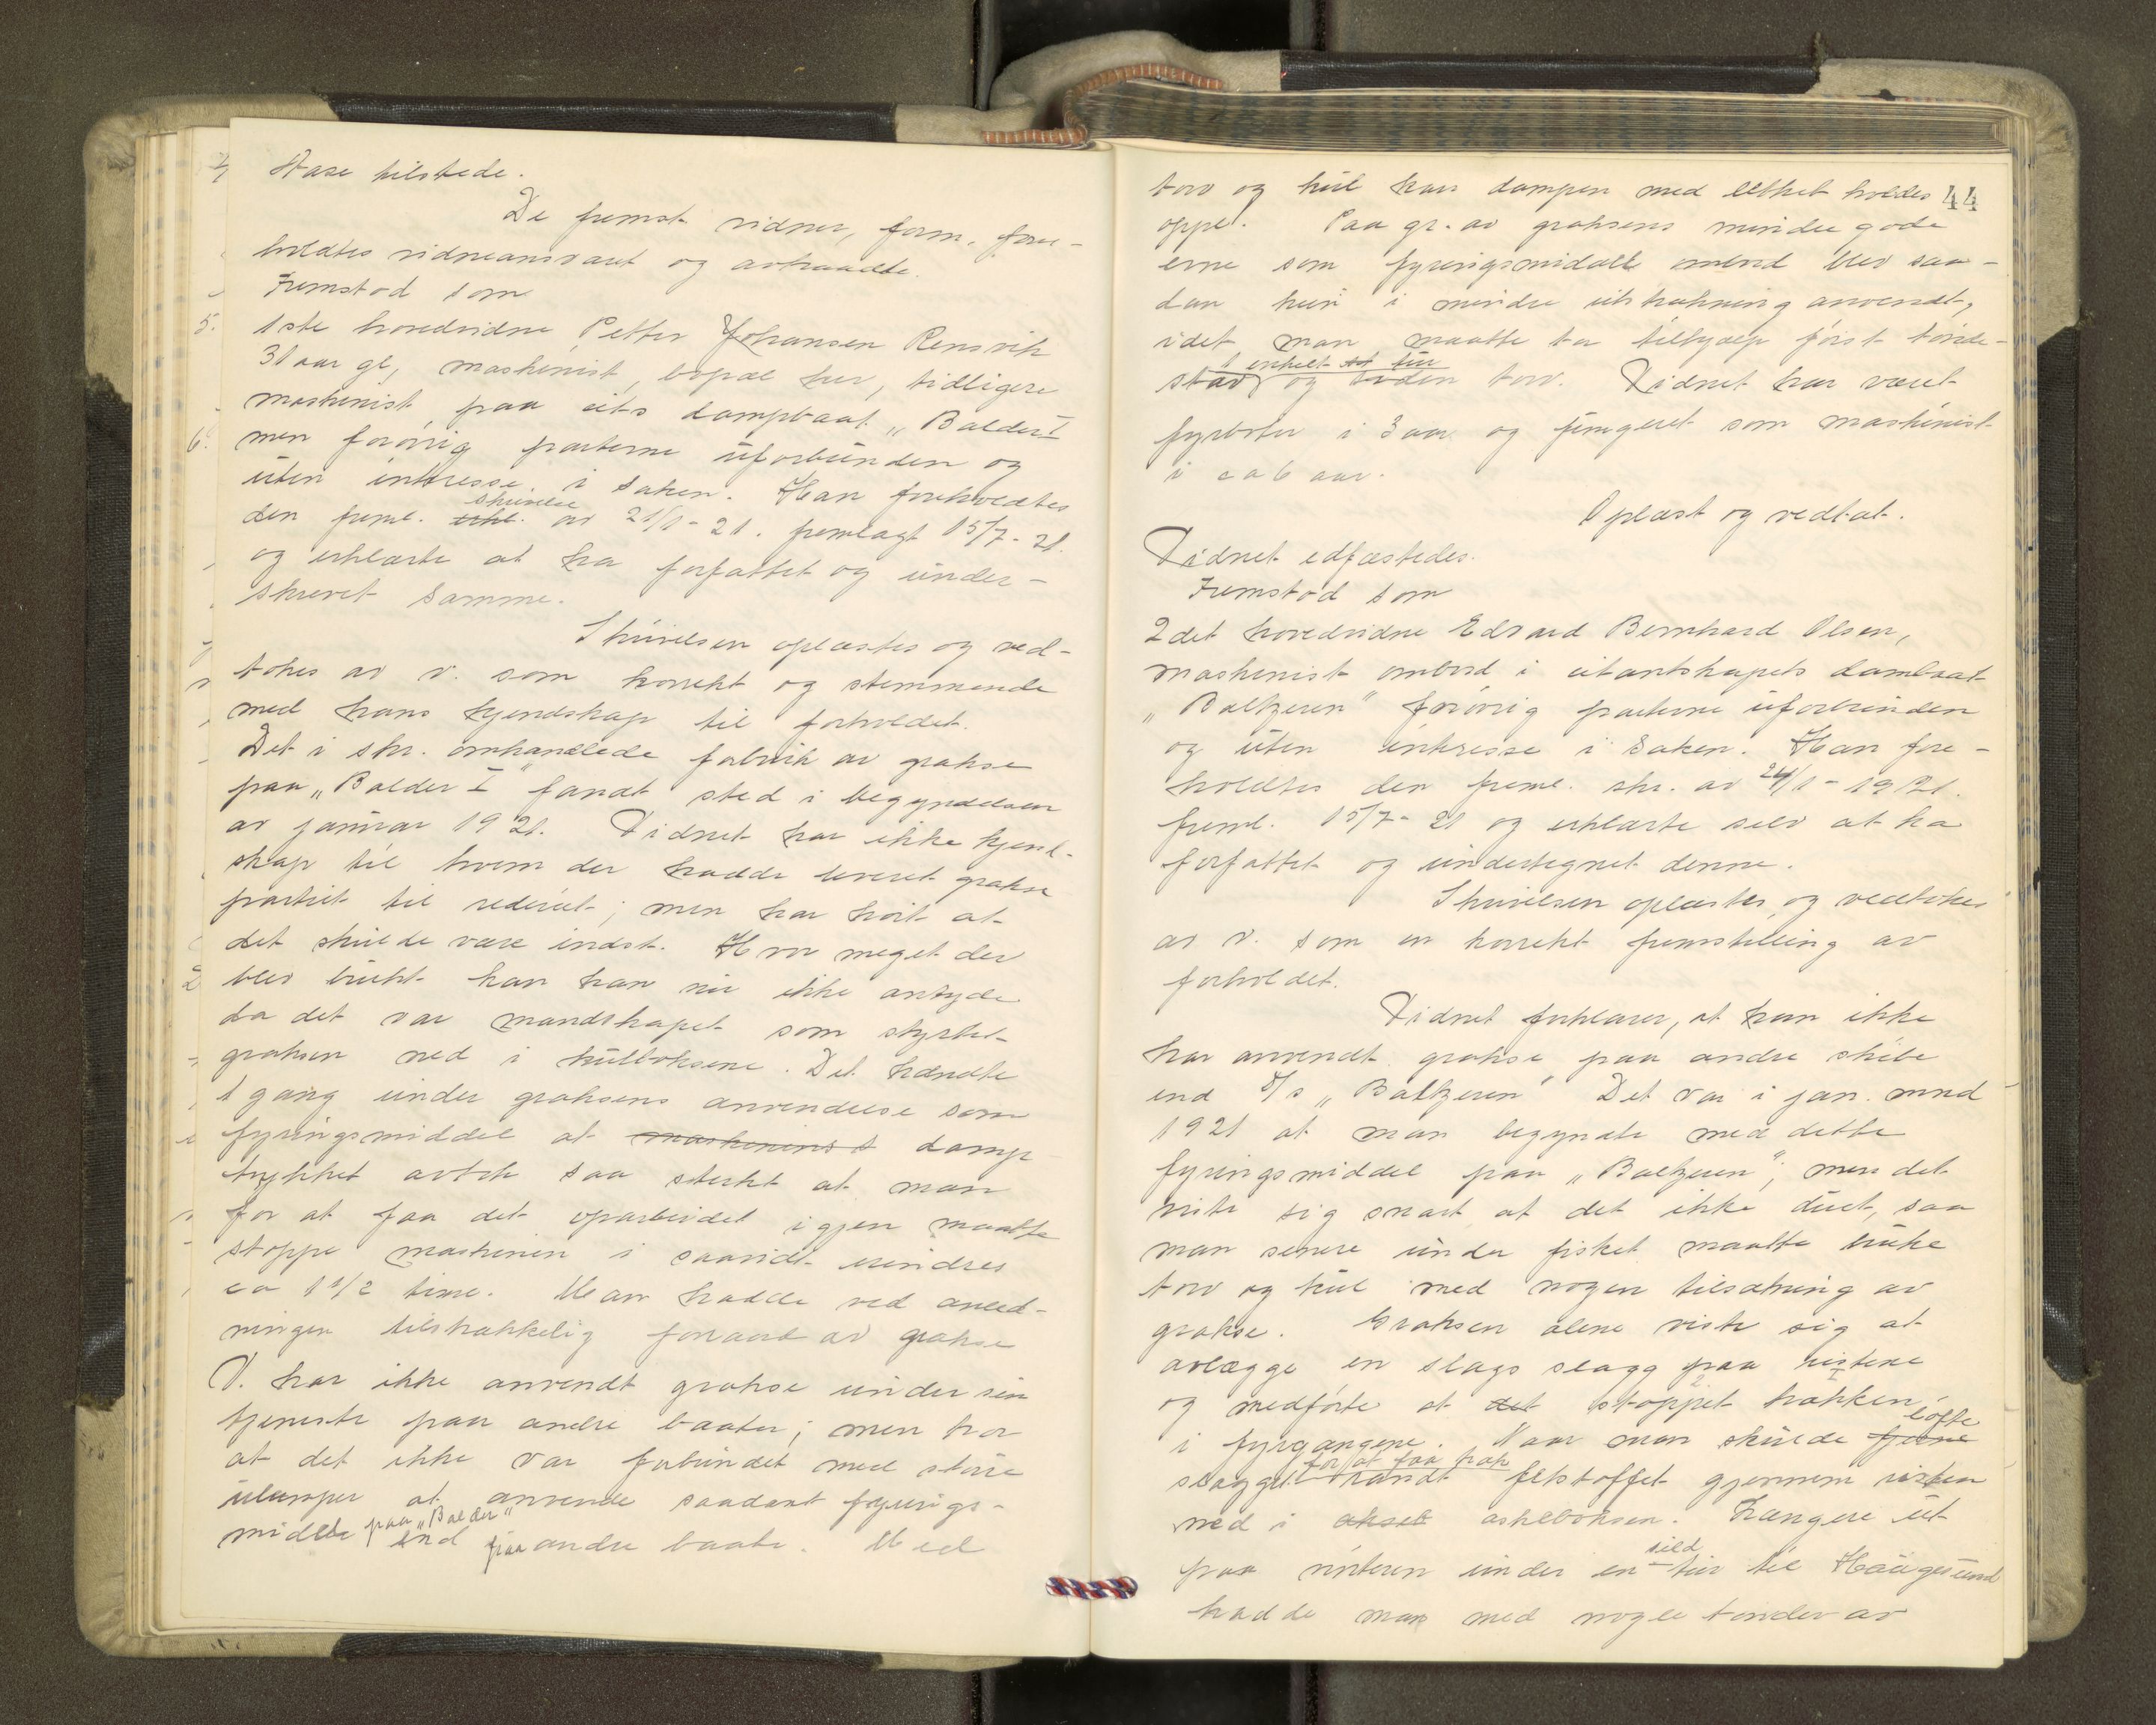 Aase tilstede.
De fremst. vidner, form. fore-
holdtes vidneansvaret og avhaadte.
Fremstod som
5. 1ste hovedvidne Petter Johansen Rensvik
31 aar gl, maskinist, bopæl her, tidligere
maskinist paa cits dampbaat "Balder I
6. men forøvrig parterne uforbunden og
uten intresse i saken. Han foreholdtes
skrivelse
den freml. erkl. av 21/1-21. fremlagt 15/7-21.
og erklærte at ha forfattet og under-
skrevet samme.
Skrivelsen oplæstes og ved-
tokes av v. som korrekt og stemmende
med hans kjendskap til forholdet.
Det i skr. omhandlede forbruk av grakse
paa "Balder I" fandt sted i begyndelsen
av januar 1921. Vidnet har ikke kjend-
skap til hvem der hadde leveret grakse
partiet til rederiet; men har hørt at
det skulde være indst. Hvor meget der
2 blev brukt kan han nu ikke antyde
da det var mandskapet som styrtet
graksen ned i kulboksene. Det hændte
1 gang under graksens anvendelse som
fyringsmiddel at maskinens t damp
trykket avtok saa sterkt at man
for at faa det oparbeidet igjen maatte
stoppe maskinen i saavidt erindres
ca 1 1/2 time. Man hadde ved anled-
ningen tilstrækkelig forraad av grakse
V. har ikke anvendt grakse under sin
tjeneste paa andre baater; men tror
at det ikke var forbundet med større
ulemper at anvende saadant fyrings-
paa "Balder"
middel end paa andre baate. Med
44
torv og kul kan dampen med letthet holdes
oppe. Paa gr. av graksens mindre gode
evne som fyringsmiddel ombord blev saa-
dan kun i mindre utstrækning anvendt,
idet man maatte ta tilhjælp først tønde-
1 enkelt tur
stav og siden torv. Vidnet har været
fyrbøter i 3 aar og fungeret som maskinist
i ca 6 aar.
Oplæst og vedtat.
Vidnet edfæstedes.
Fremstod som
2det hovedvidne Edvard Bernhard Olsen,
maskinist ombord i citantskapets dambaat
"Baltzeren" forøvrig parterne uforbunden
og uten intresse i saken. Han fore-
holdtes den freml. skr. av 24/1-1921.
freml. 15/7-21 og erklærte selv at ha
forfattet og undertegnet denne.
Skrivelsen oplæstes og vedtokes
av v. som en korrekt fremstilling av
forholdet.
Vidnet forklarer, at han ikke
har anvendt grakse paa andre skibe
end D/s "Baltzeren" Det var i jan. mnd
1921 at man begyndte med dette
fyringsmiddel paa "Baltzeren"; men det
viste sig snart at det ikke duet, saa
man senere under fisket maatte bruke
torv og kul med nogen tilsætning av
grakse. Graksen alene viste sig at
avlægge en slags slagg paa ristene
og medførte at det stoppet trækken
løfte
i fyrgangene. Naar man skulde fjerne
for at faa træk
slagget randt fetstoffet gjennem risten
ned i akset askeboksen. Længere ut
sild
paa vinteren under en tur til Haugesund
hadde man med nogle tønder av